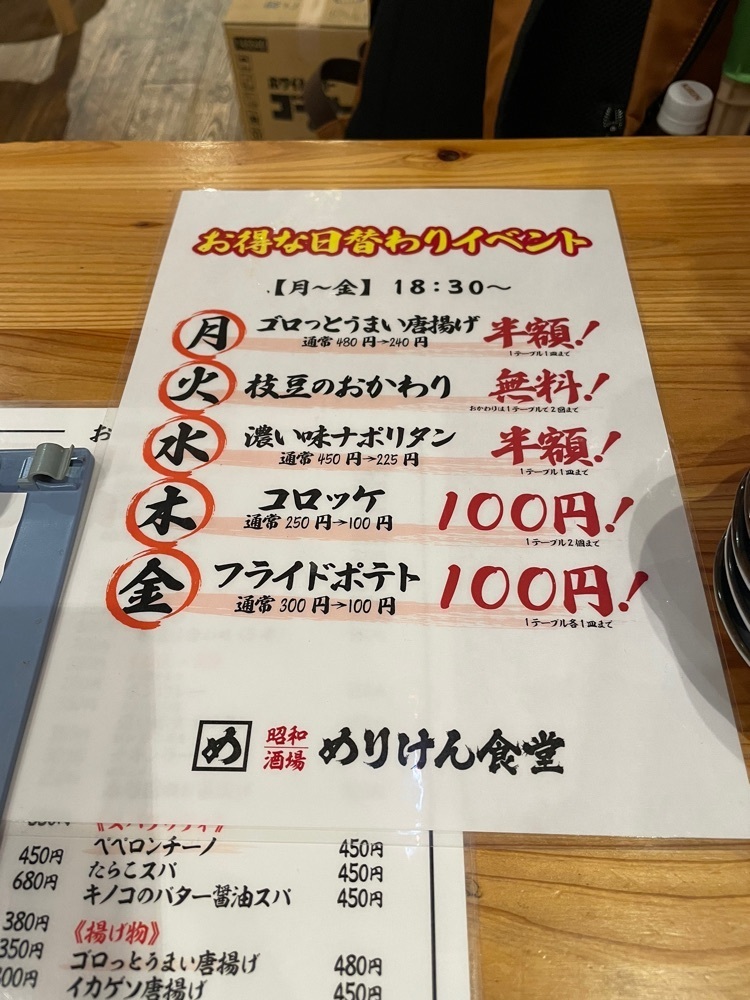 お得な日替わりイベント
【月～金】 18：30～
月 ゴロっとうまい唐揚げ 半額！
通常 480 円→240 円
1テーブル1皿まで
火 枝豆のおかわり 無料！
おかわりは1テーブルで2回まで
水 濃い味ナポリタン 半額！
通常 450 円→225 円
1テーブル1皿まで
木 コロッケ 100円！
通常 250 円→100 円
1テーブル2個まで
金 フライドポテト 100円！
通常 300 円→100 円
1テーブル各1皿まで
め 昭和酒場 めりけん食堂
お
450円 ペペロンチーノ 450円
680円 たらこスパ 450円
キノコのバター醤油スパ 450円
380円 《揚げ物》
350円 ゴロっとうまい唐揚げ 480円
イカゲソ唐揚げ 450円